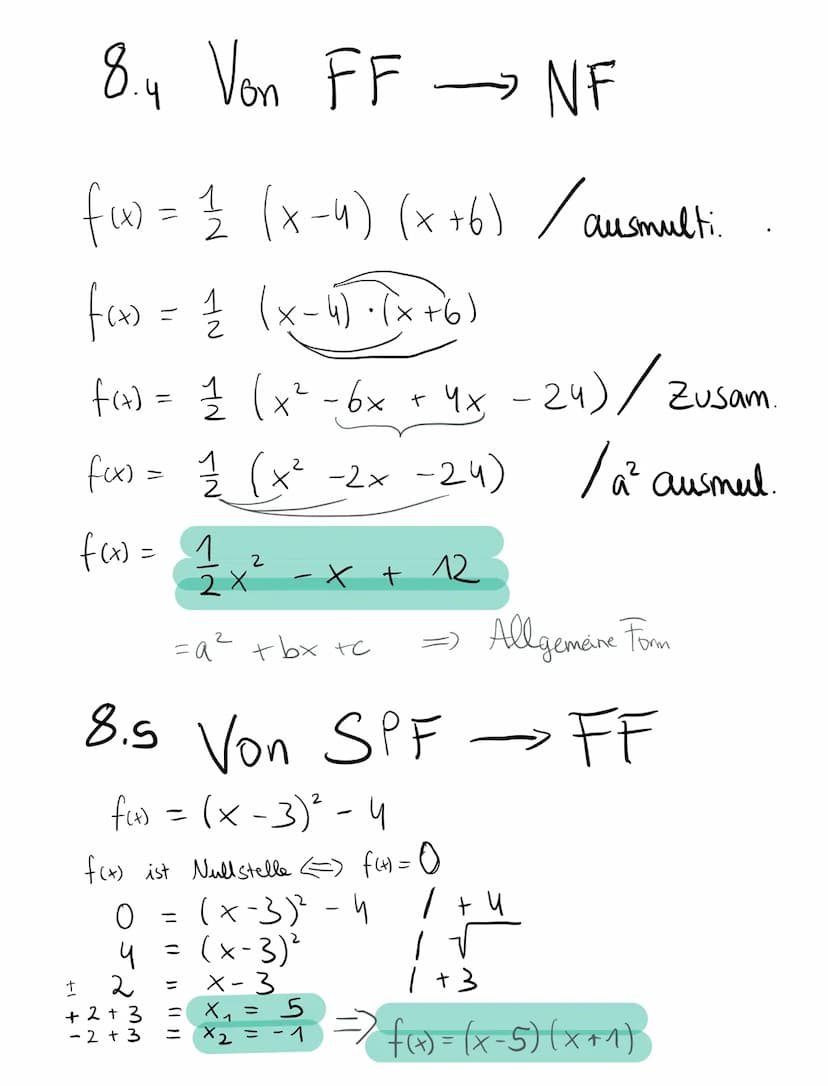 8.4 Von FF → NF
f(x) = 1/2 (x-4) (x+6) / ausmulti.
f(x) = 1/2 (x-4)·(x+6)
f(x) = 1/2 (x² - 6x + 4x - 24) / Zusam.
f(x) = 1/2 (x² -2x -24) / a² ausmul.
f(x) = 1/2 x² - x + 12
= a² + bx + c ⇒ Allgemeine Form
8.5 Von SPF → FF
f(x) = (x-3)² - 4
f(x) ist Nullstelle ⇔ f(x) = 0
0 = (x-3)² - 4 | + 4
4 = (x-3)² | √
± 2 = x-3 | +3
+2+3 = x₁ = 5
-2+3 = x₂ = -1 ⇒ f(x) = (x-5)(x+1)